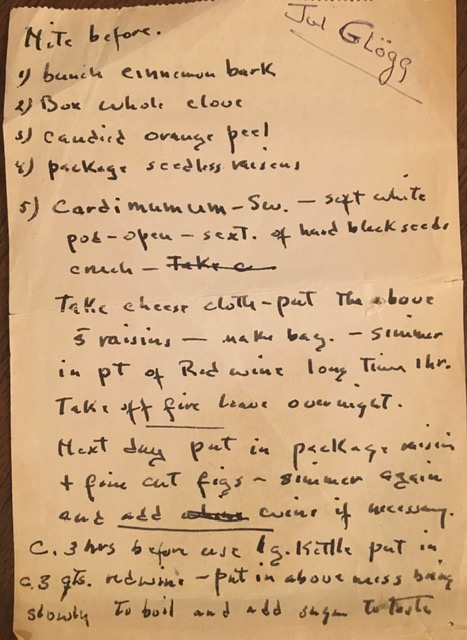 Jul Glögg
Nite before.
1) bunch cinnemon bark
2) Box whole clove
3) candied orange peel
4) package seedless raisens
5) Cardimumum-Sw. - soft white
pod-open - sext. of hard black seeds
crush - Take a
Take cheese cloth-put the above
5 raisins - make bag. - simmer
in pt of Red wine long time 1hr.
Take off fire leave overnight.
Next day put in package raisin
+ fine cut figs - simmer again
and add wine if necessary.
C. 3 hrs before use lg. Kettle put in
c. 3 qts. redwine - put in above mess bring
slowly to boil and add sugar to taste